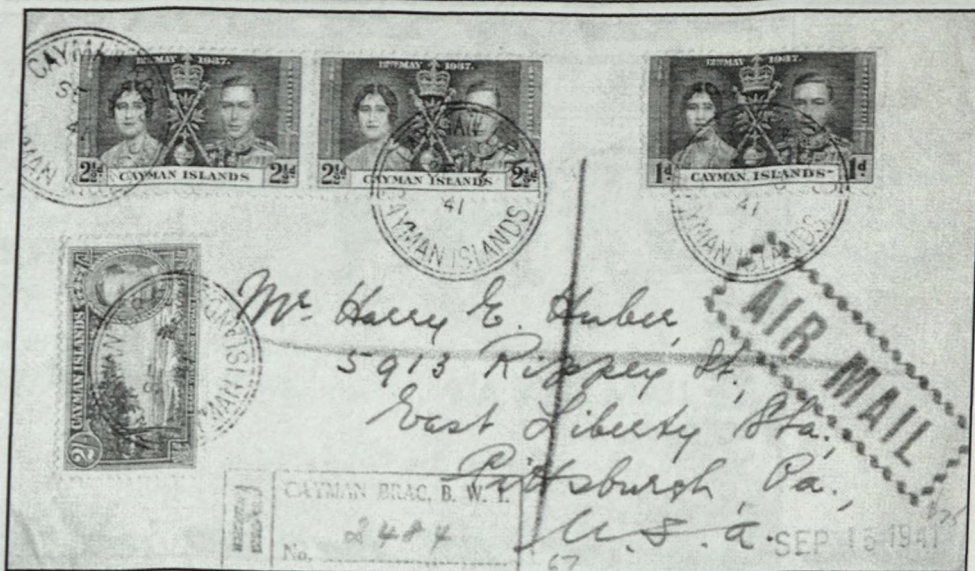 12TH MAY 1937.
2½d. CAYMAN ISLANDS 2½d.
12TH MAY 1937.
2½d. CAYMAN ISLANDS 2½d.
12TH MAY 1937.
1d. CAYMAN ISLANDS 1d.
CAYMAN
SE
CAYMAN ISLANDS
41
CAYMAN ISLANDS
41
CAYMAN ISLANDS
CAYMAN ISLANDS
2/-
AIR MAIL
Mr. Harry E. Huber
5913 Rippey St.,
East Liberty Sta.,
Pittsburgh, Pa.,
U.S.A.
CAYMAN BRAC, B. W. I.
No. 2484
SEP 15 1941
67